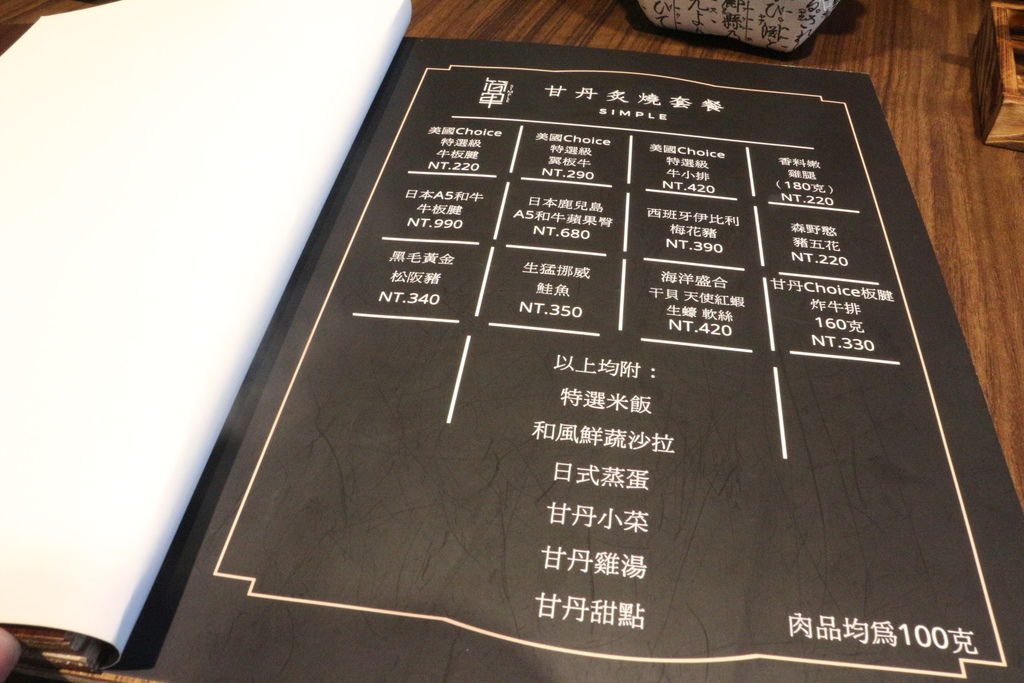 甘丹炙燒套餐
SIMPLE
美國Choice
特選級
牛板腱
NT.220
美國Choice
特選級
翼板牛
NT.290
美國Choice
特選級
牛小排
NT.420
香料嫩
雞腿
（180克）
NT.220
日本A5和牛
牛板腱
NT.990
日本鹿兒島
A5和牛蘋果臀
NT.680
西班牙伊比利
梅花豬
NT.390
森野憨
豬五花
NT.220
黑毛黃金
松阪豬
NT.340
生猛挪威
鮭魚
NT.350
海洋盛合
干貝 天使紅蝦
生蠔 軟絲
NT.420
甘丹Choice板腱
炸牛排
160克
NT.330
以上均附：
特選米飯
和風鮮蔬沙拉
日式蒸蛋
甘丹小菜
甘丹雞湯
甘丹甜點
肉品均爲100克